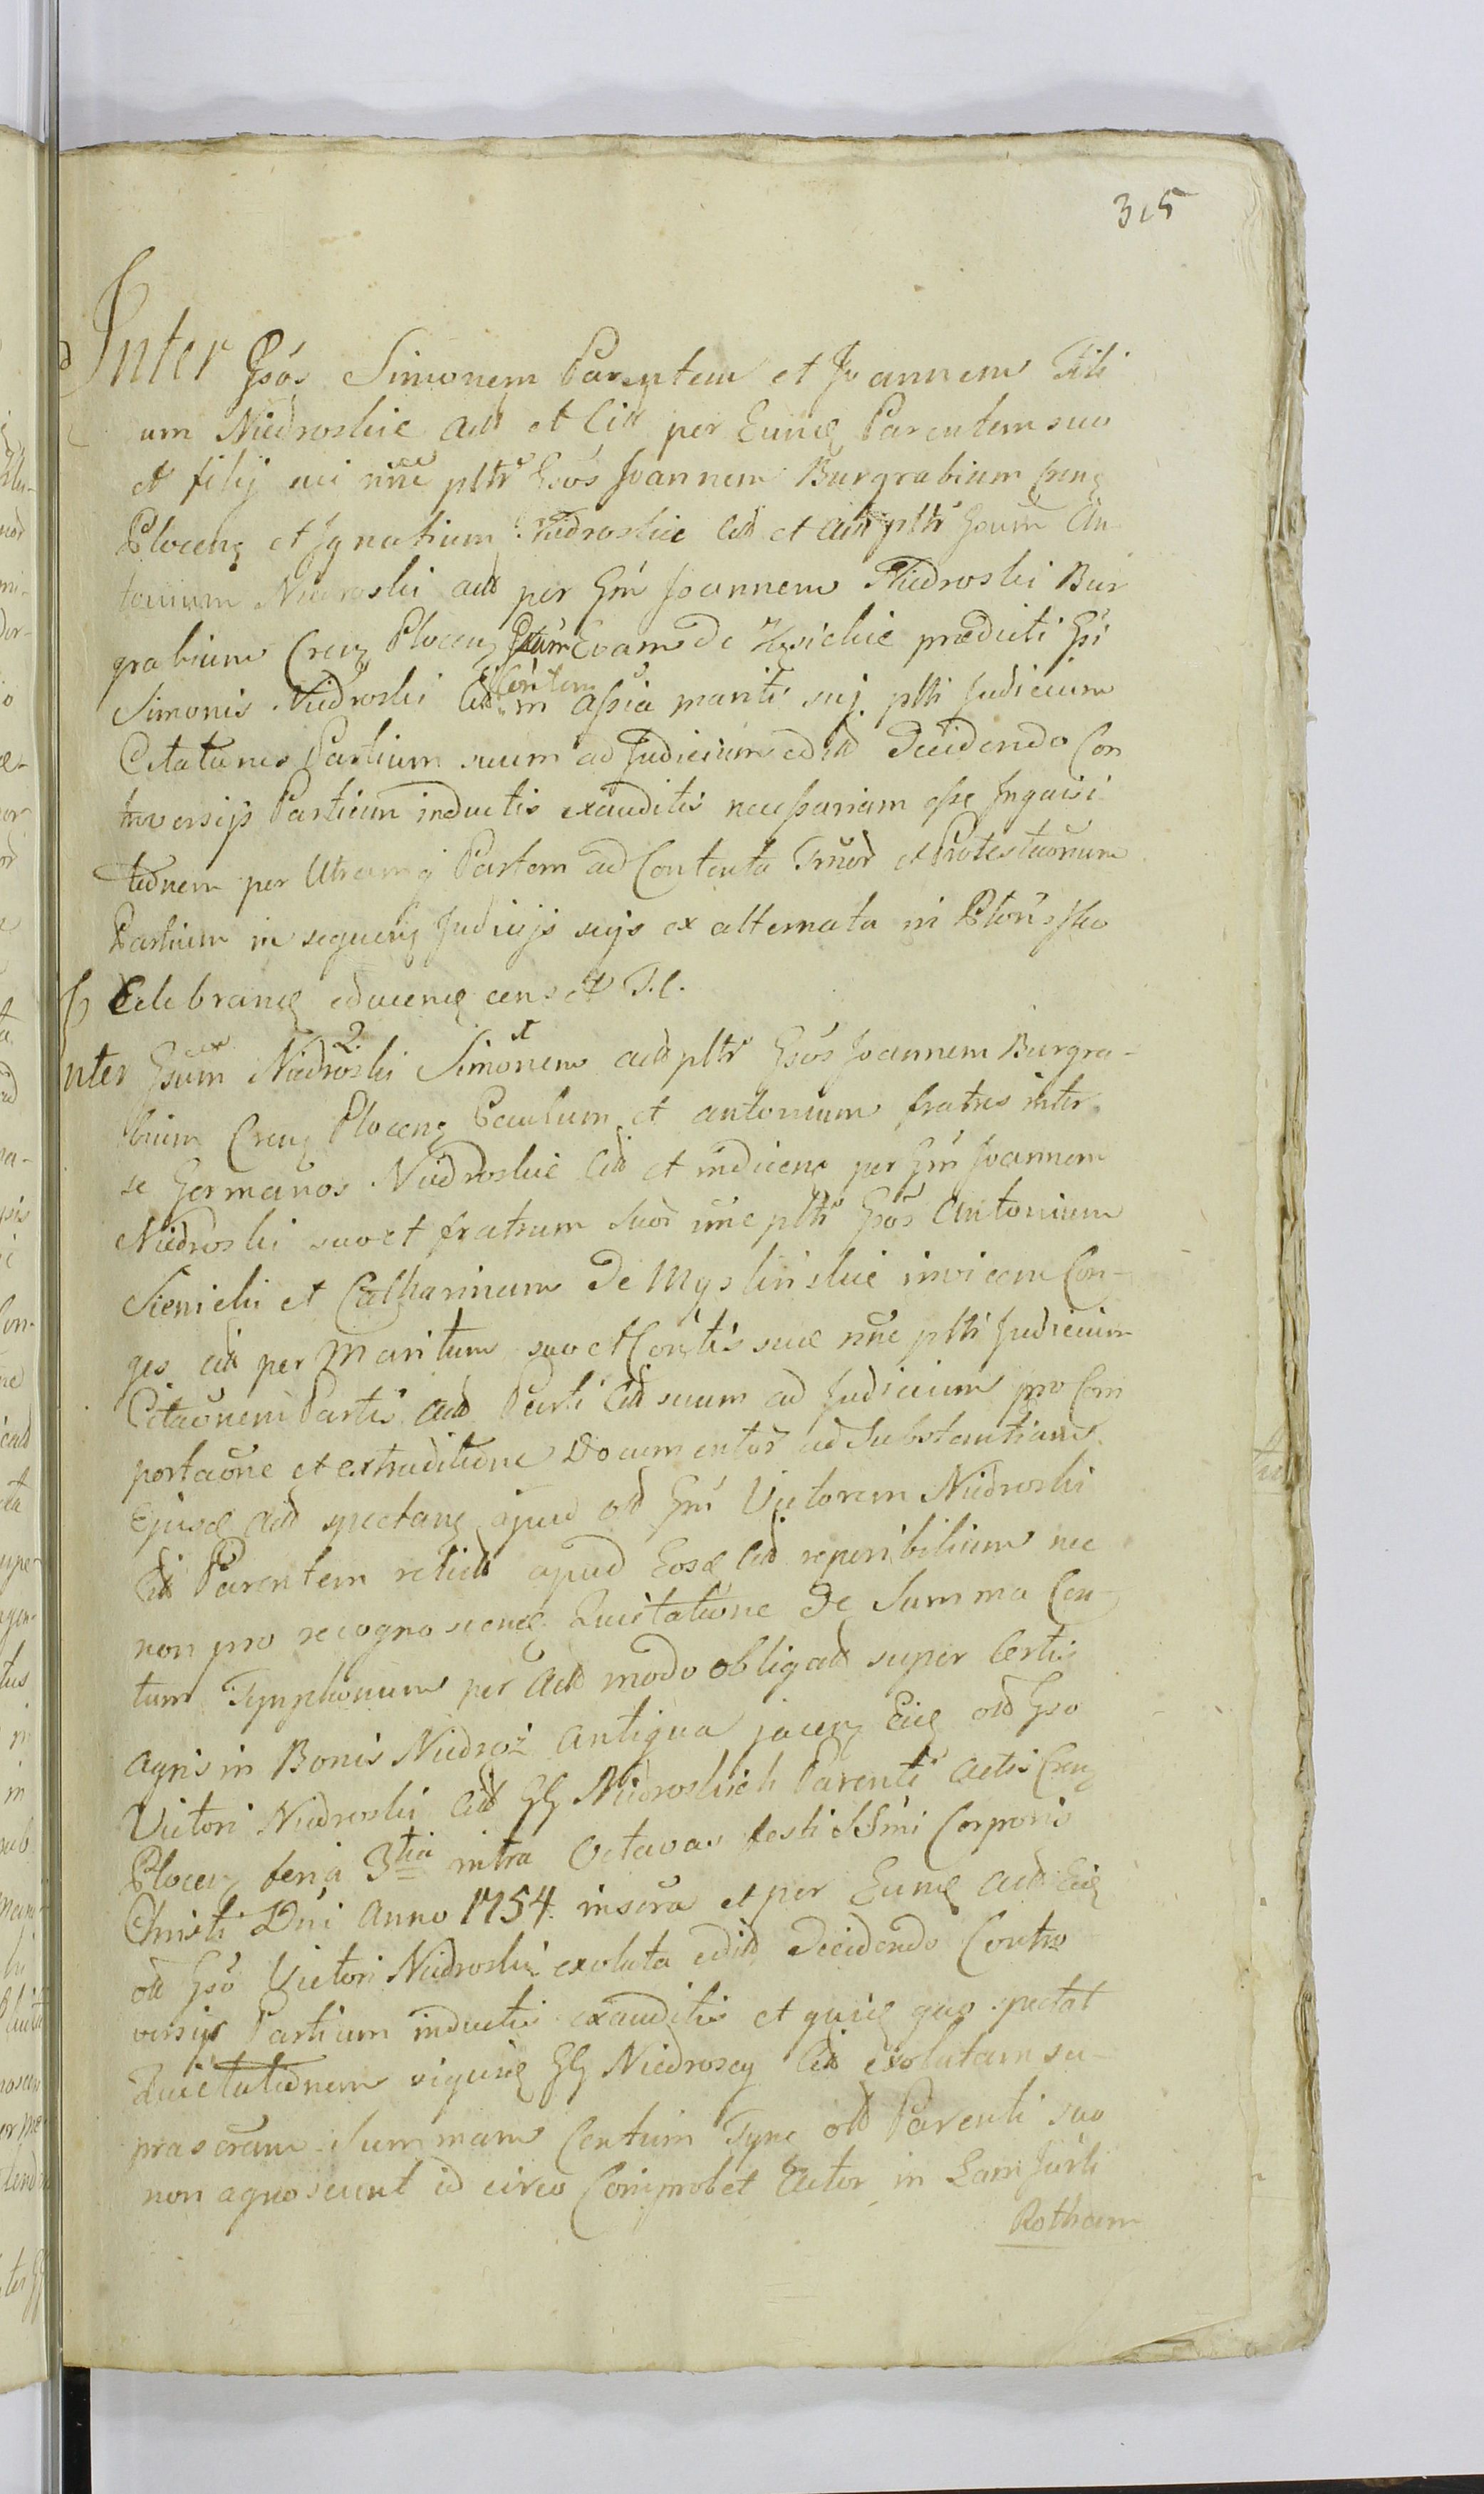 315
Inter Gsos Simonem Parentem et Joannem Fili
um Niedroskie Act et Citt per Eund Parentem suo
et filij sui nne pltr Gsos Joannem Burgrabium Crens
Plocens et Ignatium Niedroskie Citt et Act pltr Gsum An
tonium Niedroski act per Gm Joannem Niedroski Bur
grabium Crens Plocens Gsam Evam de praedicti Gsi
Simonis Niedroski Citt Contem in assia mariti suj pltr Judicium
Citationes Partium suum ad Judicium edit Decidendo Con
troversijs Partium inductis exauditis necessariam esse Inquisi
tionem per Utramq Partem ad Contenta Tmor et Protestaonum
Partium in sequens Judicijs sujs ex alternata in
Celebrand educend cens et T.C.
2.
Inter Gsum Niedroski Simonem act pltr Gsos Joannem Burgra-
bium Crens Plocens Paulum et antonium fratres inter
se Germanos Niedroskie Citt et indicens per Gm Joannem
Niedroski suo et fratrum suor nne pltr Gsos Antonium
Sienicki et Catharinam de Myslinskie invicem Con-
ges citt per Maritum suo et Contis suae nne pltr Judicium
Citaonem Partis Act Parti Citt suum ad Judicium pro Com
portaone et extraditione Documentor ad Substantiam
Ejusd Act spectans apud olt Gm Victorem Niedroski
Citt Parentem relict apud Eosd Citt reperibilium nec
non pro recognoscend Quietatione de Summa Cen
tum Tymphonum per Act modo obligat super certis
agris in Bonis Niedroż Antiqua jacens Eid olt Gso
Victori Niedroski Citt GG Niedroskich Parenti actis Crens
Plocens feria 3tia intra Octavas festi SSmi Corporis
Christi Dni Anno 1754. inscra et per Eund Act Eid
olt Gso Victori Niedroski exoluta edit Decidendo Contro
versijs Partium inductis exauditis et quid quo spectat
Quietationem siquid GG Niedroscy Citt exolutam su-
prascram Summam Centum Tync olt Parenti suo
non agnoscunt id circo Comprobet Actor in Lam Jurti
Rotham